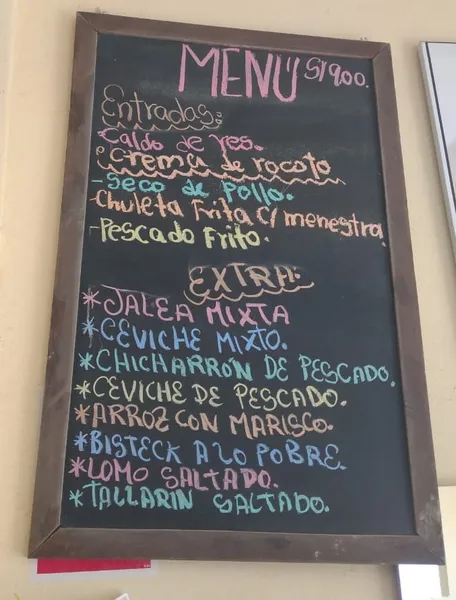 MENÚ S/9.00.
Entradas:
-Caldo de res.
•Crema de rocoto
-Seco de Pollo.
-Chuleta Frita c/ menestra.
-Pescado Frito.
EXTRA:
*JALEA MIXTA
*CEVICHE MIXTO.
*CHICHARRÓN DE PESCADO.
*CEVICHE DE PESCADO.
*ARROZ CON MARISCO.
*BISTECK A LO POBRE.
*LOMO SALTADO.
*TALLARIN SALTADO.